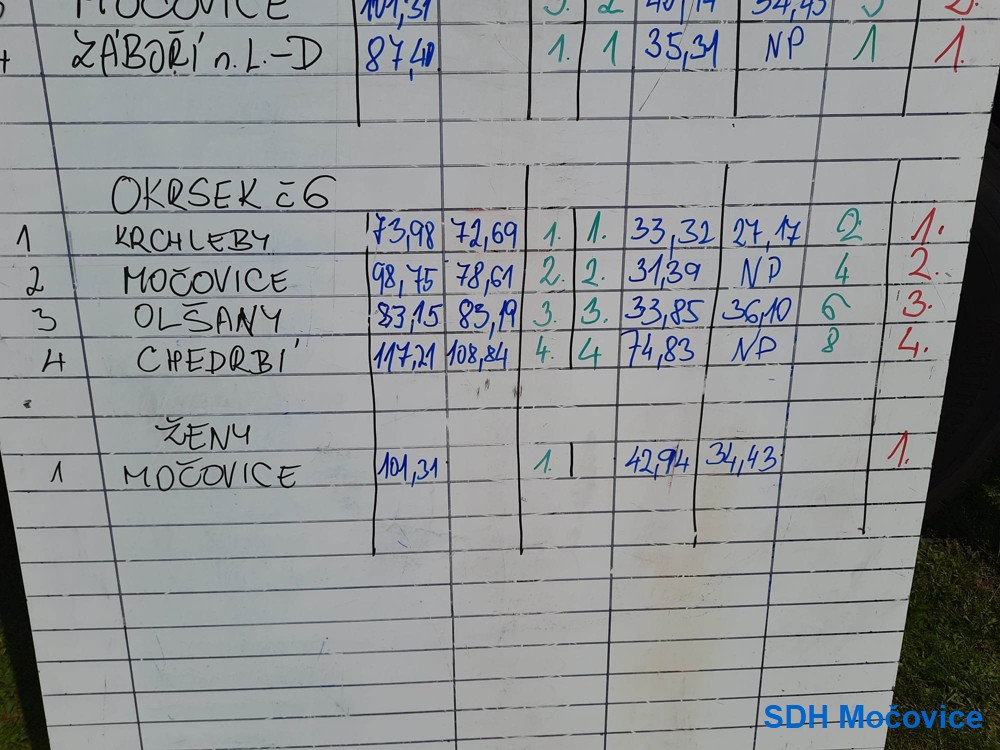 MOČOVICE 101,31 3. 2 34,43 3 2.
ZÁBOŘÍ n.L.-D 87,41 1. 1 35,31 NP 1 1.
OKRSEK č 6
1 KRCHLEBY 73,98 72,69 1. 1. 33,32 27,17 2 1.
2 MOČOVICE 98,75 78,61 2. 2. 31,39 NP 4 2.
3 OLŠANY 83,15 83,19 3. 3. 33,85 36,10 6 3.
4 CHEDRBÍ 117,21 108,84 4. 4 74,83 NP 8 4.
ŽENY
1 MOČOVICE 101,31 1. 42,94 34,43 1.
SDH Močovice